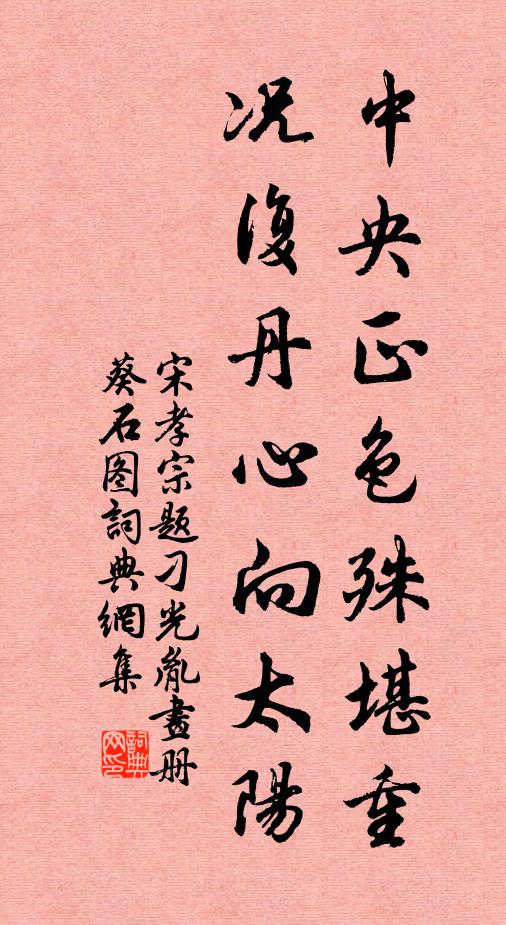 中央正色殊堪重
况復丹心向太陽
宋孝宗题刁光胤畫册
葵石图詞典網集
詞典网印